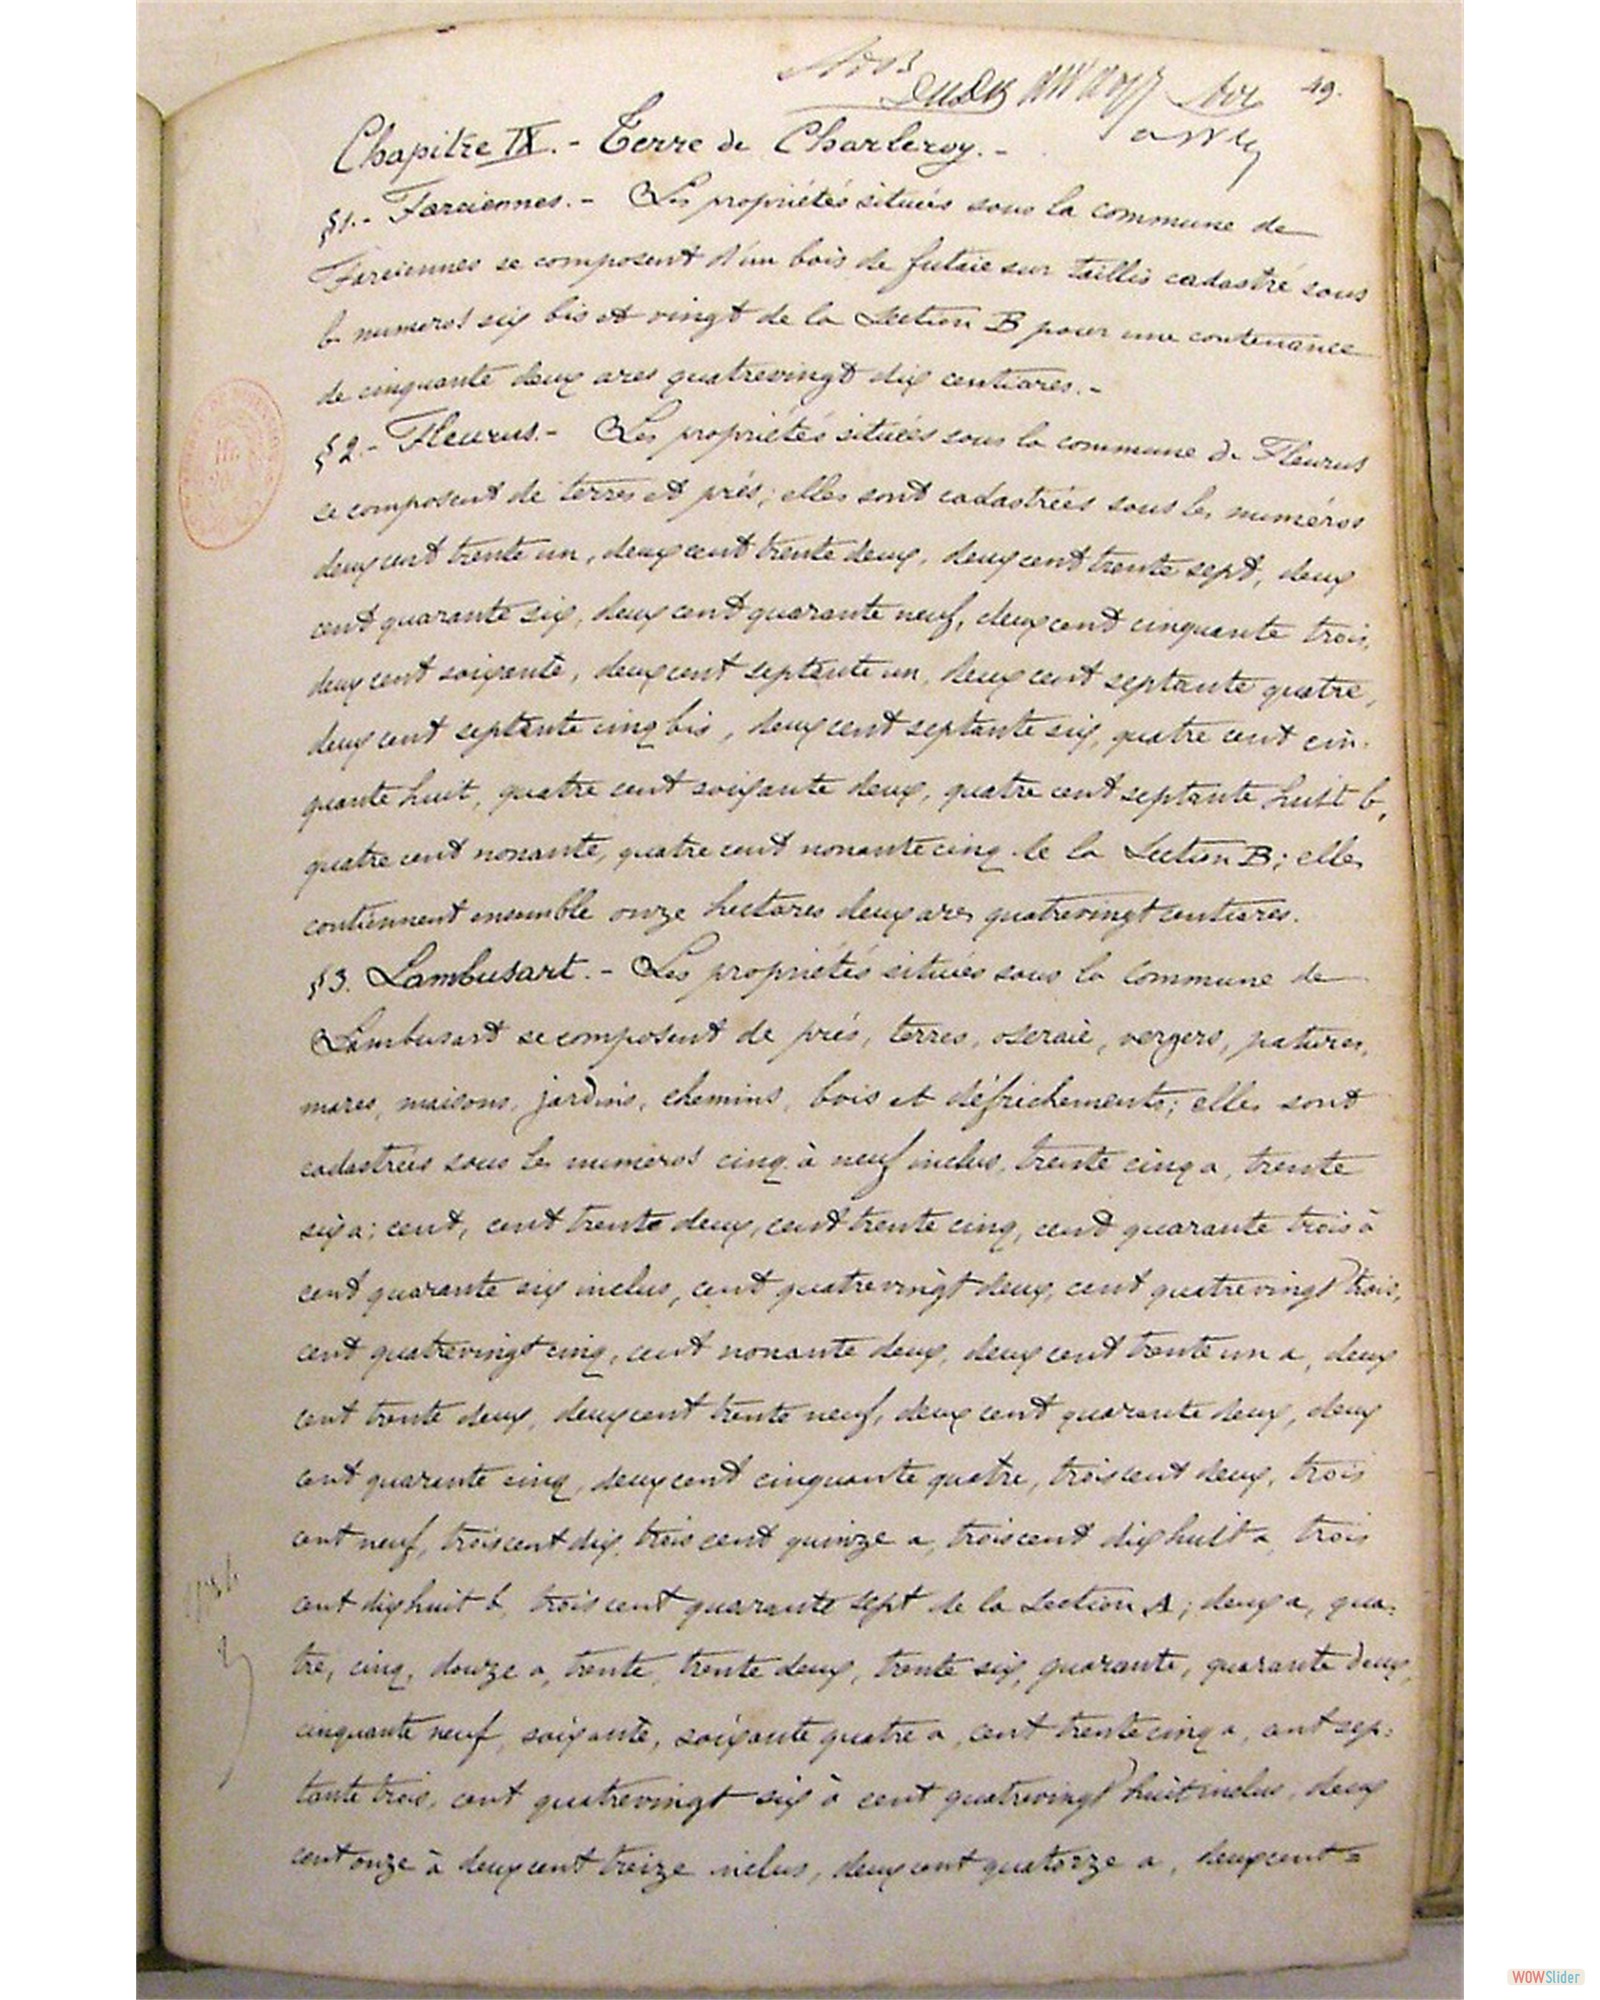 49.
Chapitre IX. - Terre de Charleroy. -
§1. - Farciennes. - Les propriétés situées sous la commune de
Farciennes se composent d'un bois de futaie sur taillis cadastré sous
les numeros six bis et vingt de la Section B pour une contenance
de cinquante deux ares quatrevingt dix centiares. -
§2. - Fleurus. - Les propriétés situées sous la commune de Fleurus
se composent de terres et prés; elles sont cadastrées sous les numéros
deux cent trente un, deux cent trente deux, deux cent trente sept, deux
cent quarante six, deux cent quarante neuf, deux cent cinquante trois,
deux cent soixante, deux cent septante un, deux cent septante quatre,
deux cent septante cinq bis, deux cent septante six, quatre cent cin-
quante huit, quatre cent soixante deux, quatre cent septante huit b,
quatre cent nonante, quatre cent nonante cinq de la Section B; elles
contiennent ensemble onze hectares deux ares quatrevingt centiares.
§3. Lambusart. - Les propriétés situées sous la commune de
Lambusart se composent de prés, terres, oseraie, vergers, patures,
mares, maisons, jardins, chemins, bois et défrichements; elles sont
cadastrées sous les numeros cinq à neuf inclus, trente cinq a, trente
six a; cent, cent trente deux, cent trente cinq, cent quarante trois à
cent quarante six inclus, cent quatrevingt deux, cent quatrevingt trois,
cent quatrevingt cinq, cent nonante deux, deux cent trente un a, deux
cent trente deux, deux cent trente neuf, deux cent quarante deux, deux
cent quarante cinq, deux cent cinquante quatre, trois cent deux, trois
cent neuf, trois cent dix, trois cent quinze a, trois cent dix huit a, trois
cent dix huit b, trois cent quarante sept de la Section A; deux a, qua-
tre, cinq, douze a, trente, trente deux, trente six, quarante, quarante deux,
cinquante neuf, soixante, soixante quatre a, cent trente cinq a, cent sep-
tante trois, cent quatrevingt six à cent quatrevingt huit inclus, deux
cent onze à deux cent treize inclus, deux cent quatorze a, deux cent=
WOWSlider